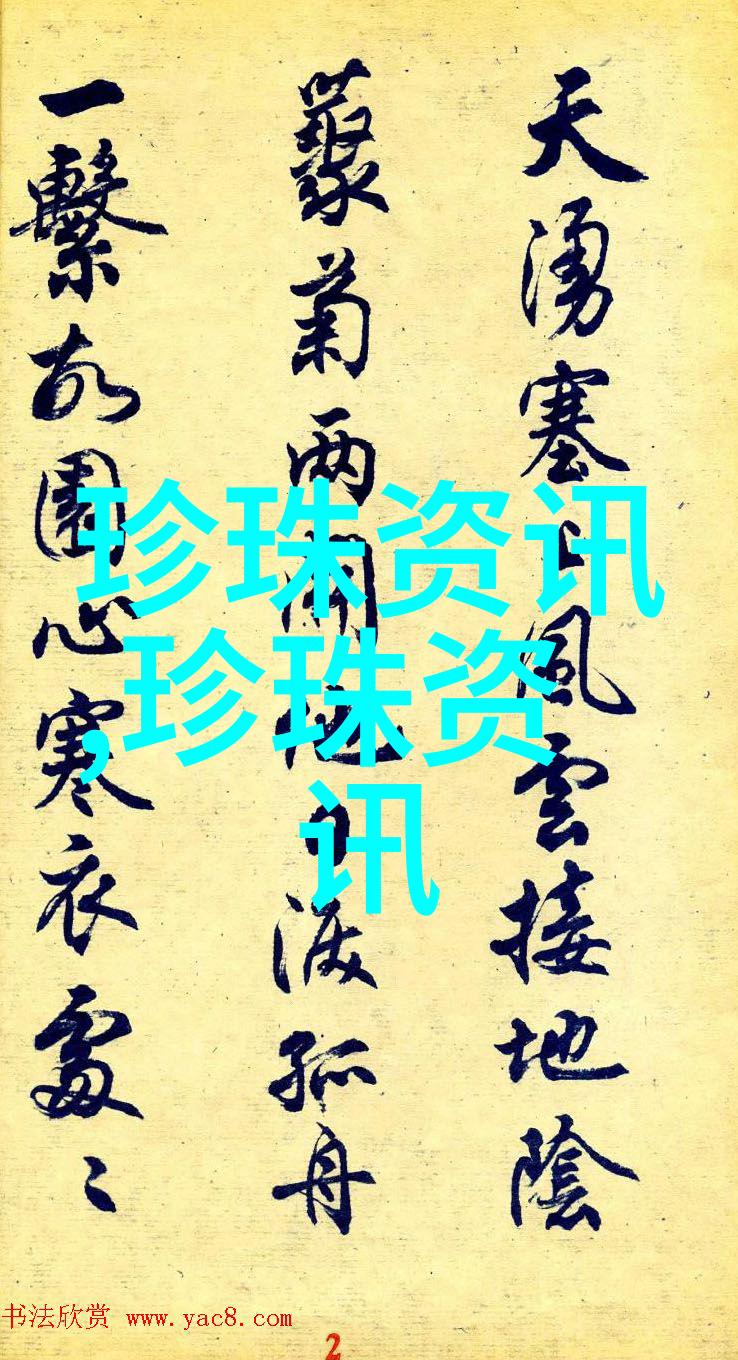 天湧塞上風雲接地陰
叢菊两開他日淚孤舟
一繫故園心寒衣處〻
珍珠资讯
,珍珠资
讯
书法欣赏 www.yac8.com
2